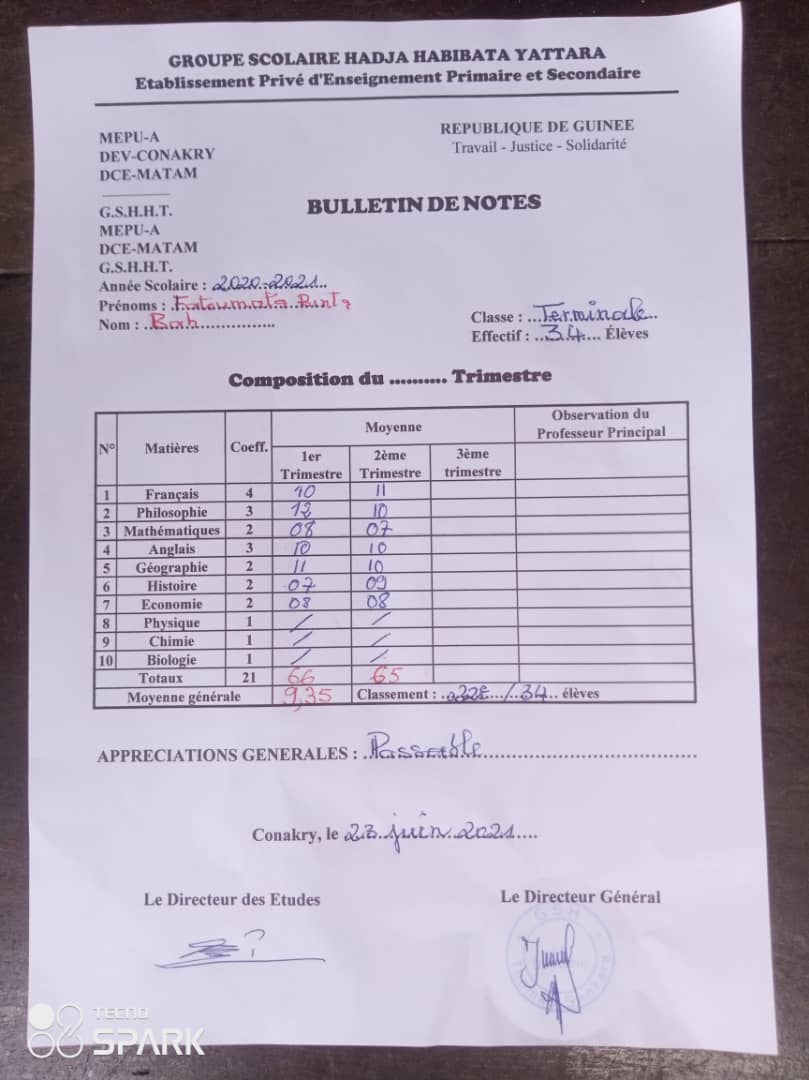 GROUPE SCOLAIRE HADJA HABIBATA YATTARA
Etablissement Privé d'Enseignement Primaire et Secondaire
MEPU-A
DEV-CONAKRY
DCE-MATAM
REPUBLIQUE DE GUINEE
Travail - Justice - Solidarité
BULLETIN DE NOTES
G.S.H.H.T.
MEPU-A
DCE-MATAM
G.S.H.H.T.
Année Scolaire : 2020-2021
Prénoms : Fatoumata Binta
Nom : Bah
Classe : Terminale
Effectif : 34 Élèves
Composition du .......... Trimestre
N° Matières Coeff. Moyenne Observation du Professeur Principal
1er Trimestre 2ème Trimestre 3ème trimestre
1 Français 4 10 11
2 Philosophie 3 12 10
3 Mathématiques 2 08 07
4 Anglais 3 10 10
5 Géographie 2 11 10
6 Histoire 2 07 09
7 Economie 2 08 08
8 Physique 1 / /
9 Chimie 1 / /
10 Biologie 1 / /
Totaux 21 66 65
Moyenne générale 9,35 Classement : / 34 élèves
APPRECIATIONS GENERALES : Passable
Conakry, le 23 juin 2021
Le Directeur des Etudes
Le Directeur Général
TECNO
SPARK